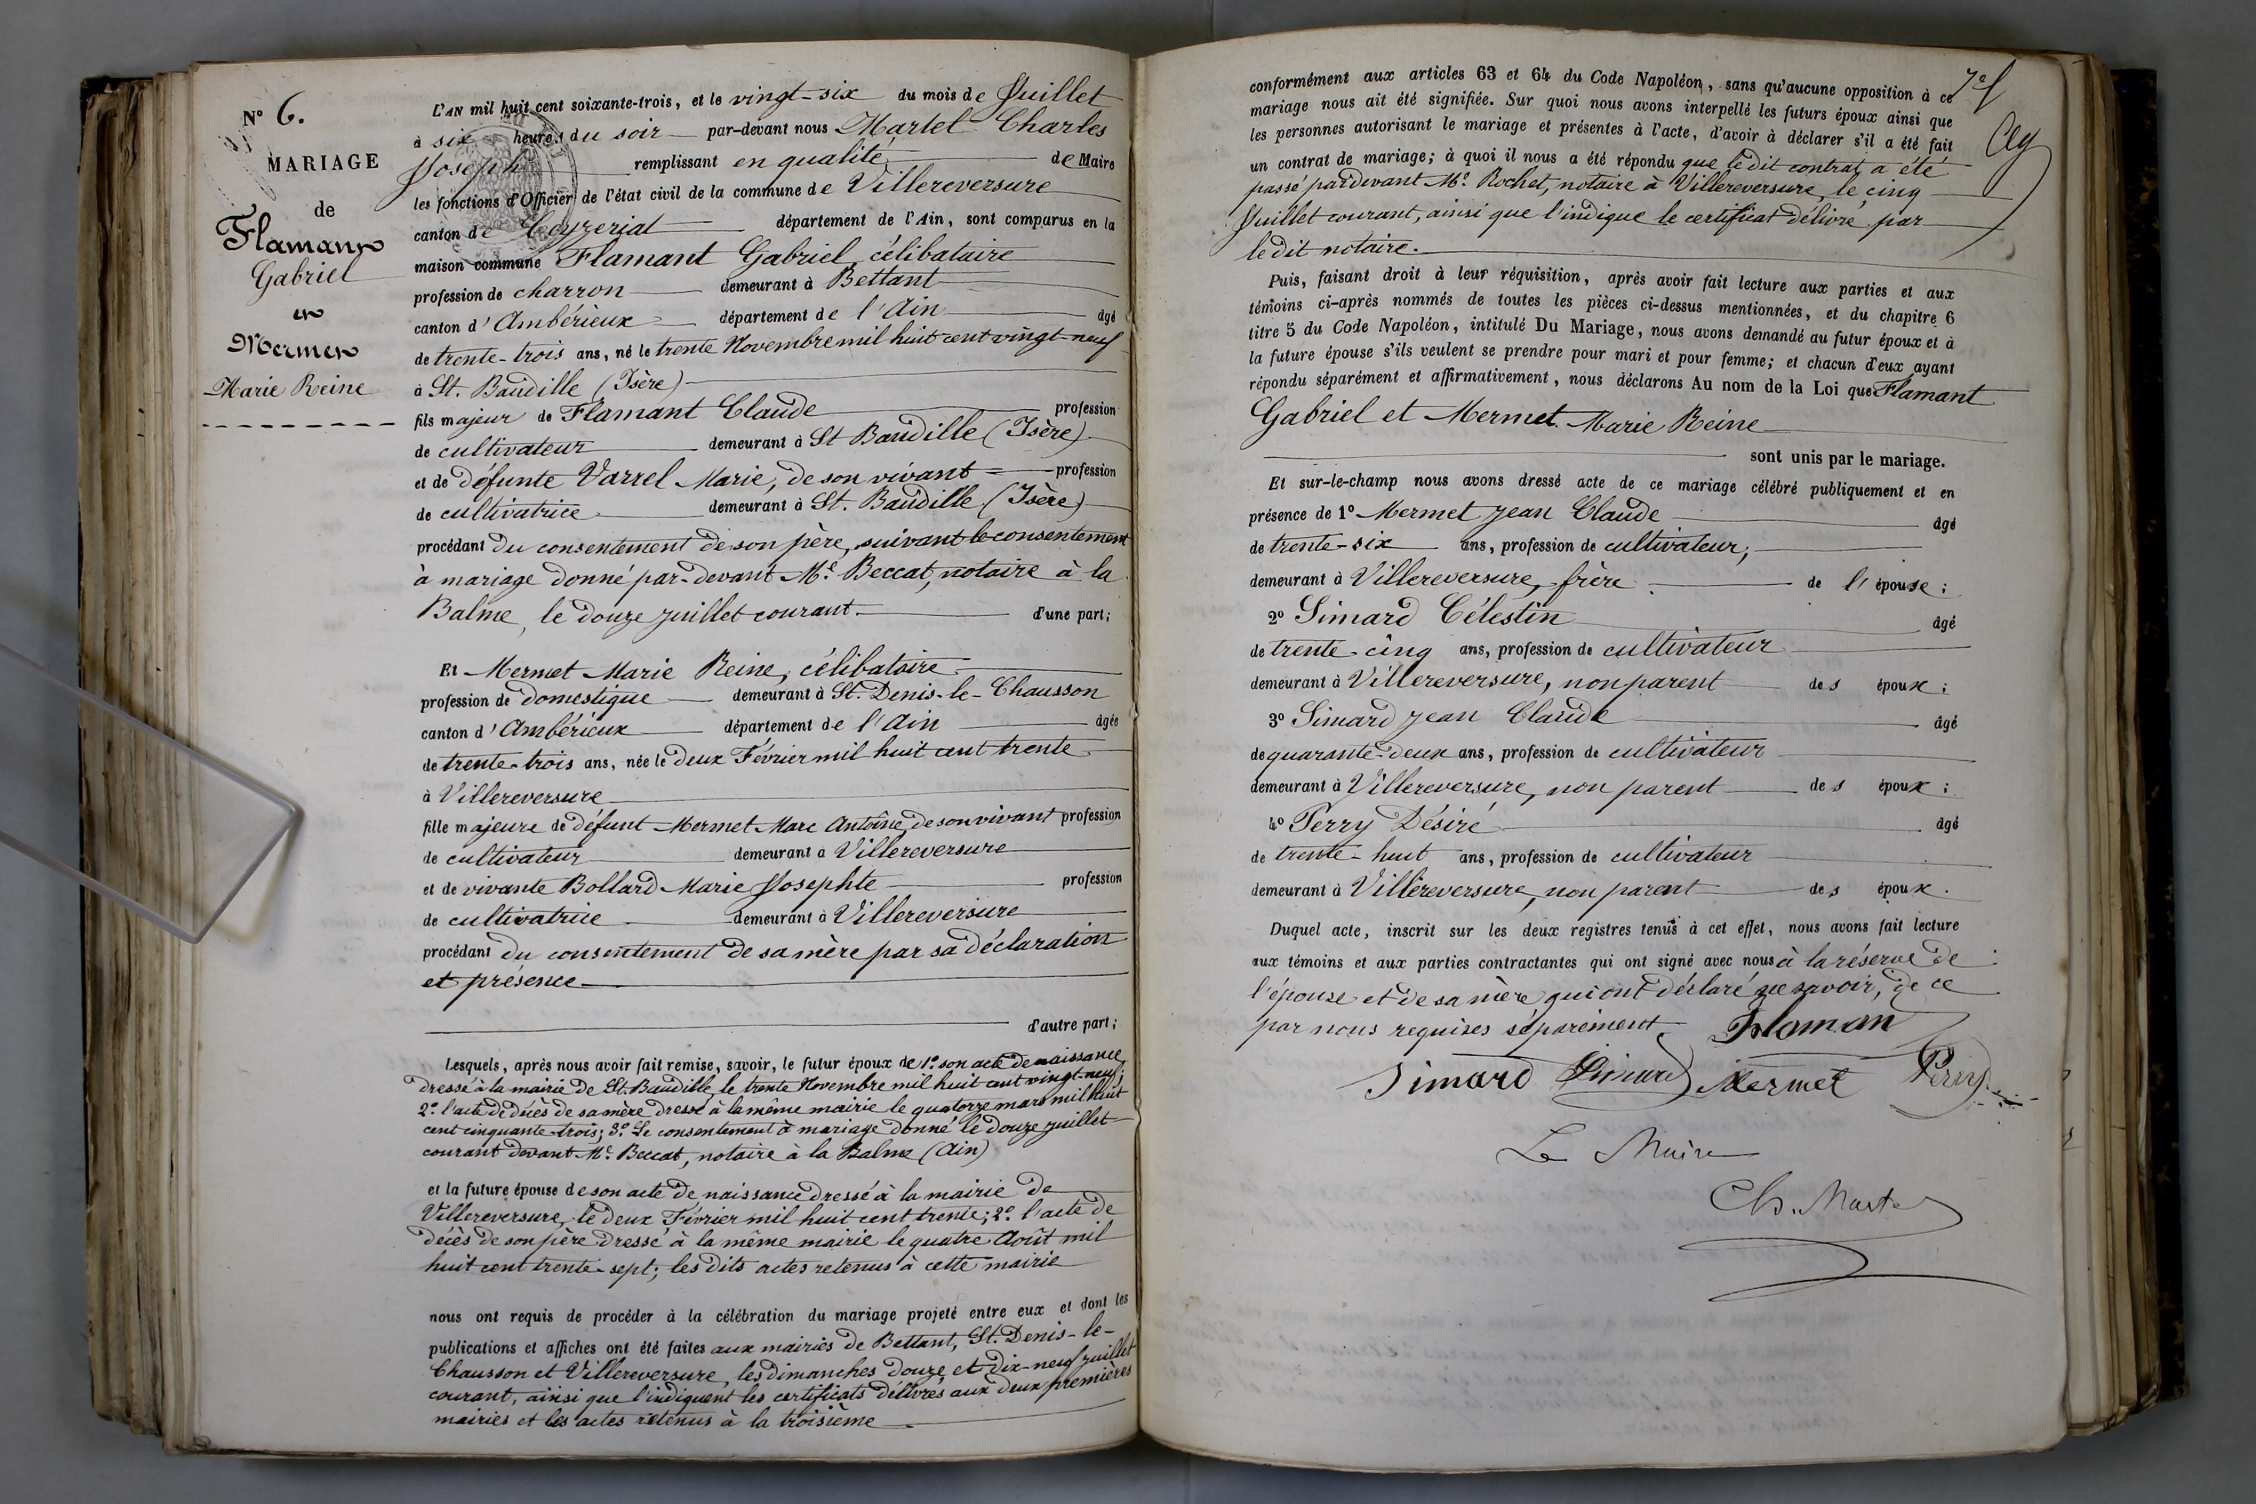 N° 6.
MARIAGE
de
Flamant
Gabriel
et
Mermet
Marie Reine
L'AN mil huit cent soixante-trois, et le vingt-six du mois de Juillet
à six heures du soir par-devant nous Martel Charles
Joseph remplissant en qualité de Maire
les fonctions d'Officier de l'état civil de la commune de Villereversure
canton de Ceyzeriat département de l'Ain, sont comparus en la
maison commune Flamant Gabriel, célibataire
profession de charron demeurant à Bettant
canton d'Ambérieux département de l'Ain âgé
de trente-trois ans, né le trente Novembre mil huit cent vingt-neuf
à St. Baudille (Isère)
fils majeur de Flamant Claude profession
de cultivateur demeurant à St Baudille (Isère)
et de défunte Varrel Marie, de son vivant profession
de cultivatrice demeurant à St. Baudille (Isère)
procédant du consentement de son père, suivant le consentement
à mariage donné par-devant Me. Beccat, notaire à la
Balme, le douze juillet courant d'une part;
Et Mermet Marie Reine, célibataire
profession de domestique demeurant à St. Denis-le-Chausson
canton d'Ambérieux département de l'Ain âgée
de trente-trois ans, née le deux Février mil huit cent trente
à Villereversure
fille majeure de défunt Mermet Marc Antoine, de son vivant profession
de cultivateur demeurant à Villereversure
et de vivante Bollard Marie Josephte profession
de cultivatrice demeurant à Villereversure
procédant du consentement de sa mère par sa déclaration
et présence
d'autre part;
Lesquels, après nous avoir fait remise, savoir, le futur époux de 1° son acte de naissance
dressé à la mairie de St. Baudille, le trente Novembre mil huit cent vingt-neuf;
2° l'acte de décès de sa mère dressé à la même mairie le quatorze mars mil huit
cent cinquante-trois; 3° Le consentement à mariage donné le douze juillet
courant devant Me. Beccat, notaire à la Balme (Ain)
et la future épouse de son acte de naissance dressé à la mairie de
Villereversure, le deux Février mil huit cent trente; 2° l'acte de
décès de son père dressé à la même mairie le quatre Août mil
huit cent trente-sept; les dits actes retenus à cette mairie
nous ont requis de procéder à la célébration du mariage projeté entre eux et dont les
publications et affiches ont été faites aux mairies de Bettant, St. Denis-le-
Chausson et Villereversure, les dimanches douze et dix-neuf juillet
courant, ainsi que l'indiquent les certificats délivrés aux deux premières
mairies et les actes retenus à la troisième
conformément aux articles 63 et 64 du Code Napoléon, sans qu'aucune opposition à ce
mariage nous ait été signifiée. Sur quoi nous avons interpellé les futurs époux ainsi que
les personnes autorisant le mariage et présentes à l'acte, d'avoir à déclarer s'il a été fait
un contrat de mariage; à quoi il nous a été répondu que le dit contrat a été
passé pardevant Me. Rochet, notaire à Villereversure, le cinq
Juillet courant, ainsi que l'indique le certificat délivré par
le dit notaire.
Puis, faisant droit à leur réquisition, après avoir fait lecture aux parties et aux
témoins ci-après nommés de toutes les pièces ci-dessus mentionnées, et du chapitre 6
titre 5 du Code Napoléon, intitulé Du Mariage, nous avons demandé au futur époux et à
la future épouse s'ils veulent se prendre pour mari et pour femme; et chacun d'eux ayant
répondu séparément et affirmativement, nous déclarons Au nom de la Loi que Flamant
Gabriel et Mermet Marie Reine
sont unis par le mariage.
Et sur-le-champ nous avons dressé acte de ce mariage célébré publiquement et en
présence de 1° Mermet Jean Claude âgé
de trente-six ans, profession de cultivateur,
demeurant à Villereversure, frère de l'épouse;
2° Simard Célestin âgé
de trente-cinq ans, profession de cultivateur
demeurant à Villereversure, non parent des époux;
3° Simard Jean Claude âgé
de quarante-deux ans, profession de cultivateur
demeurant à Villereversure, non parent des époux;
4° Perry Désiré âgé
de trente-huit ans, profession de cultivateur
demeurant à Villereversure, non parent des époux.
Duquel acte, inscrit sur les deux registres tenus à cet effet, nous avons fait lecture
aux témoins et aux parties contractantes qui ont signé avec nous à la réserve de
l'épouse et de sa mère qui ont déclaré ne savoir, de ce
par nous requises séparément. Flaman
Simard Simard Mermet Perry
Le Maire
Ch. Martel